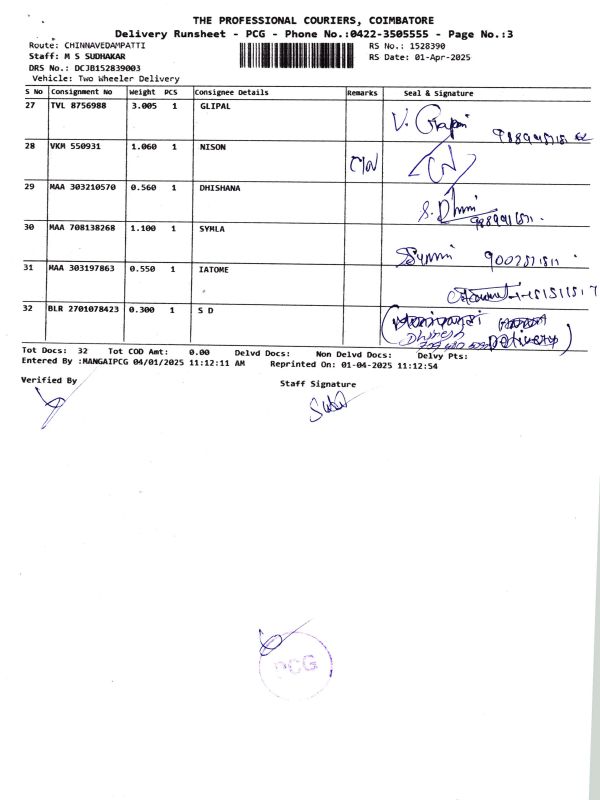 THE PROFESSIONAL COURIERS, COIMBATORE
Delivery Runsheet - PCG - Phone No.:0422-3505555 - Page No.:3
Route: CHINNAVEDAMPATTI RS No.: 1528390
Staff: M S SUDHAKAR RS Date: 01-Apr-2025
DRS No.: DCJB152839003
Vehicle: Two Wheeler Delivery
S No Consignment No Weight PCS Consignee Details Remarks Seal & Signature
27 TVL 8756988 3.005 1 GLIPAL
28 VKM 550931 1.060 1 NISON
29 MAA 303210570 0.560 1 DHISHANA
30 MAA 708138268 1.100 1 SYMLA
31 MAA 303197863 0.550 1 IATOME
32 BLR 2701078423 0.300 1 S D
Tot Docs: 32 Tot COD Amt: 0.00 Delvd Docs: Non Delvd Docs: Delvy Pts:
Entered By :MANGAIPCG 04/01/2025 11:12:11 AM Reprinted On: 01-04-2025 11:12:54
Verified By
Staff Signature
PCG